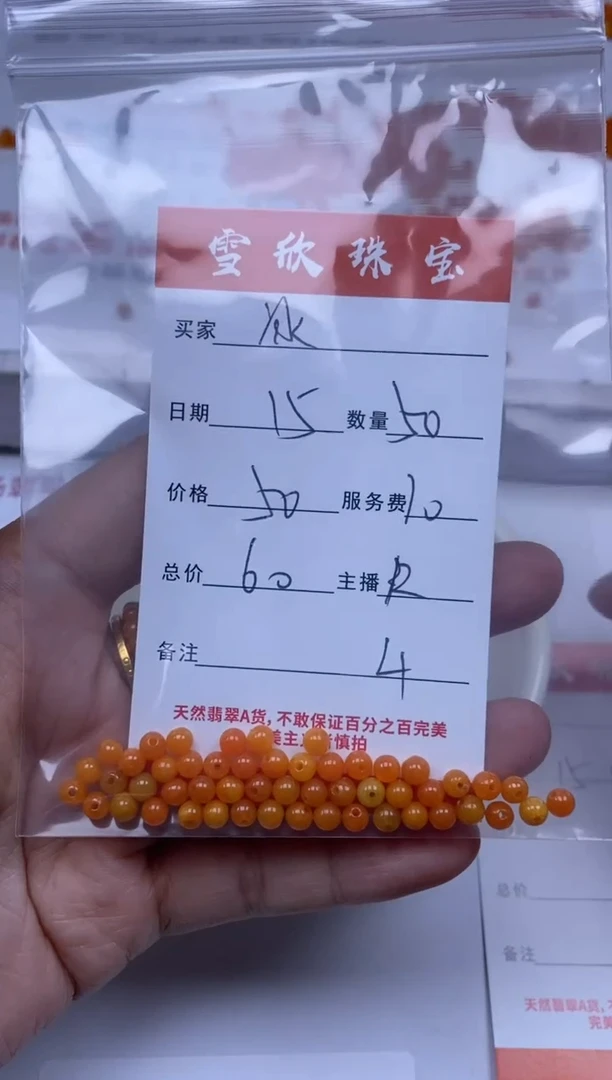 雪欣珠宝
买家
日期 15 数量 50
价格 50 服务费 10
总价 60 主播 R
备注 4
天然翡翠A货,不敢保证百分之百完美
美主 慎拍
总价
备注
天然翡翠A货,
完美